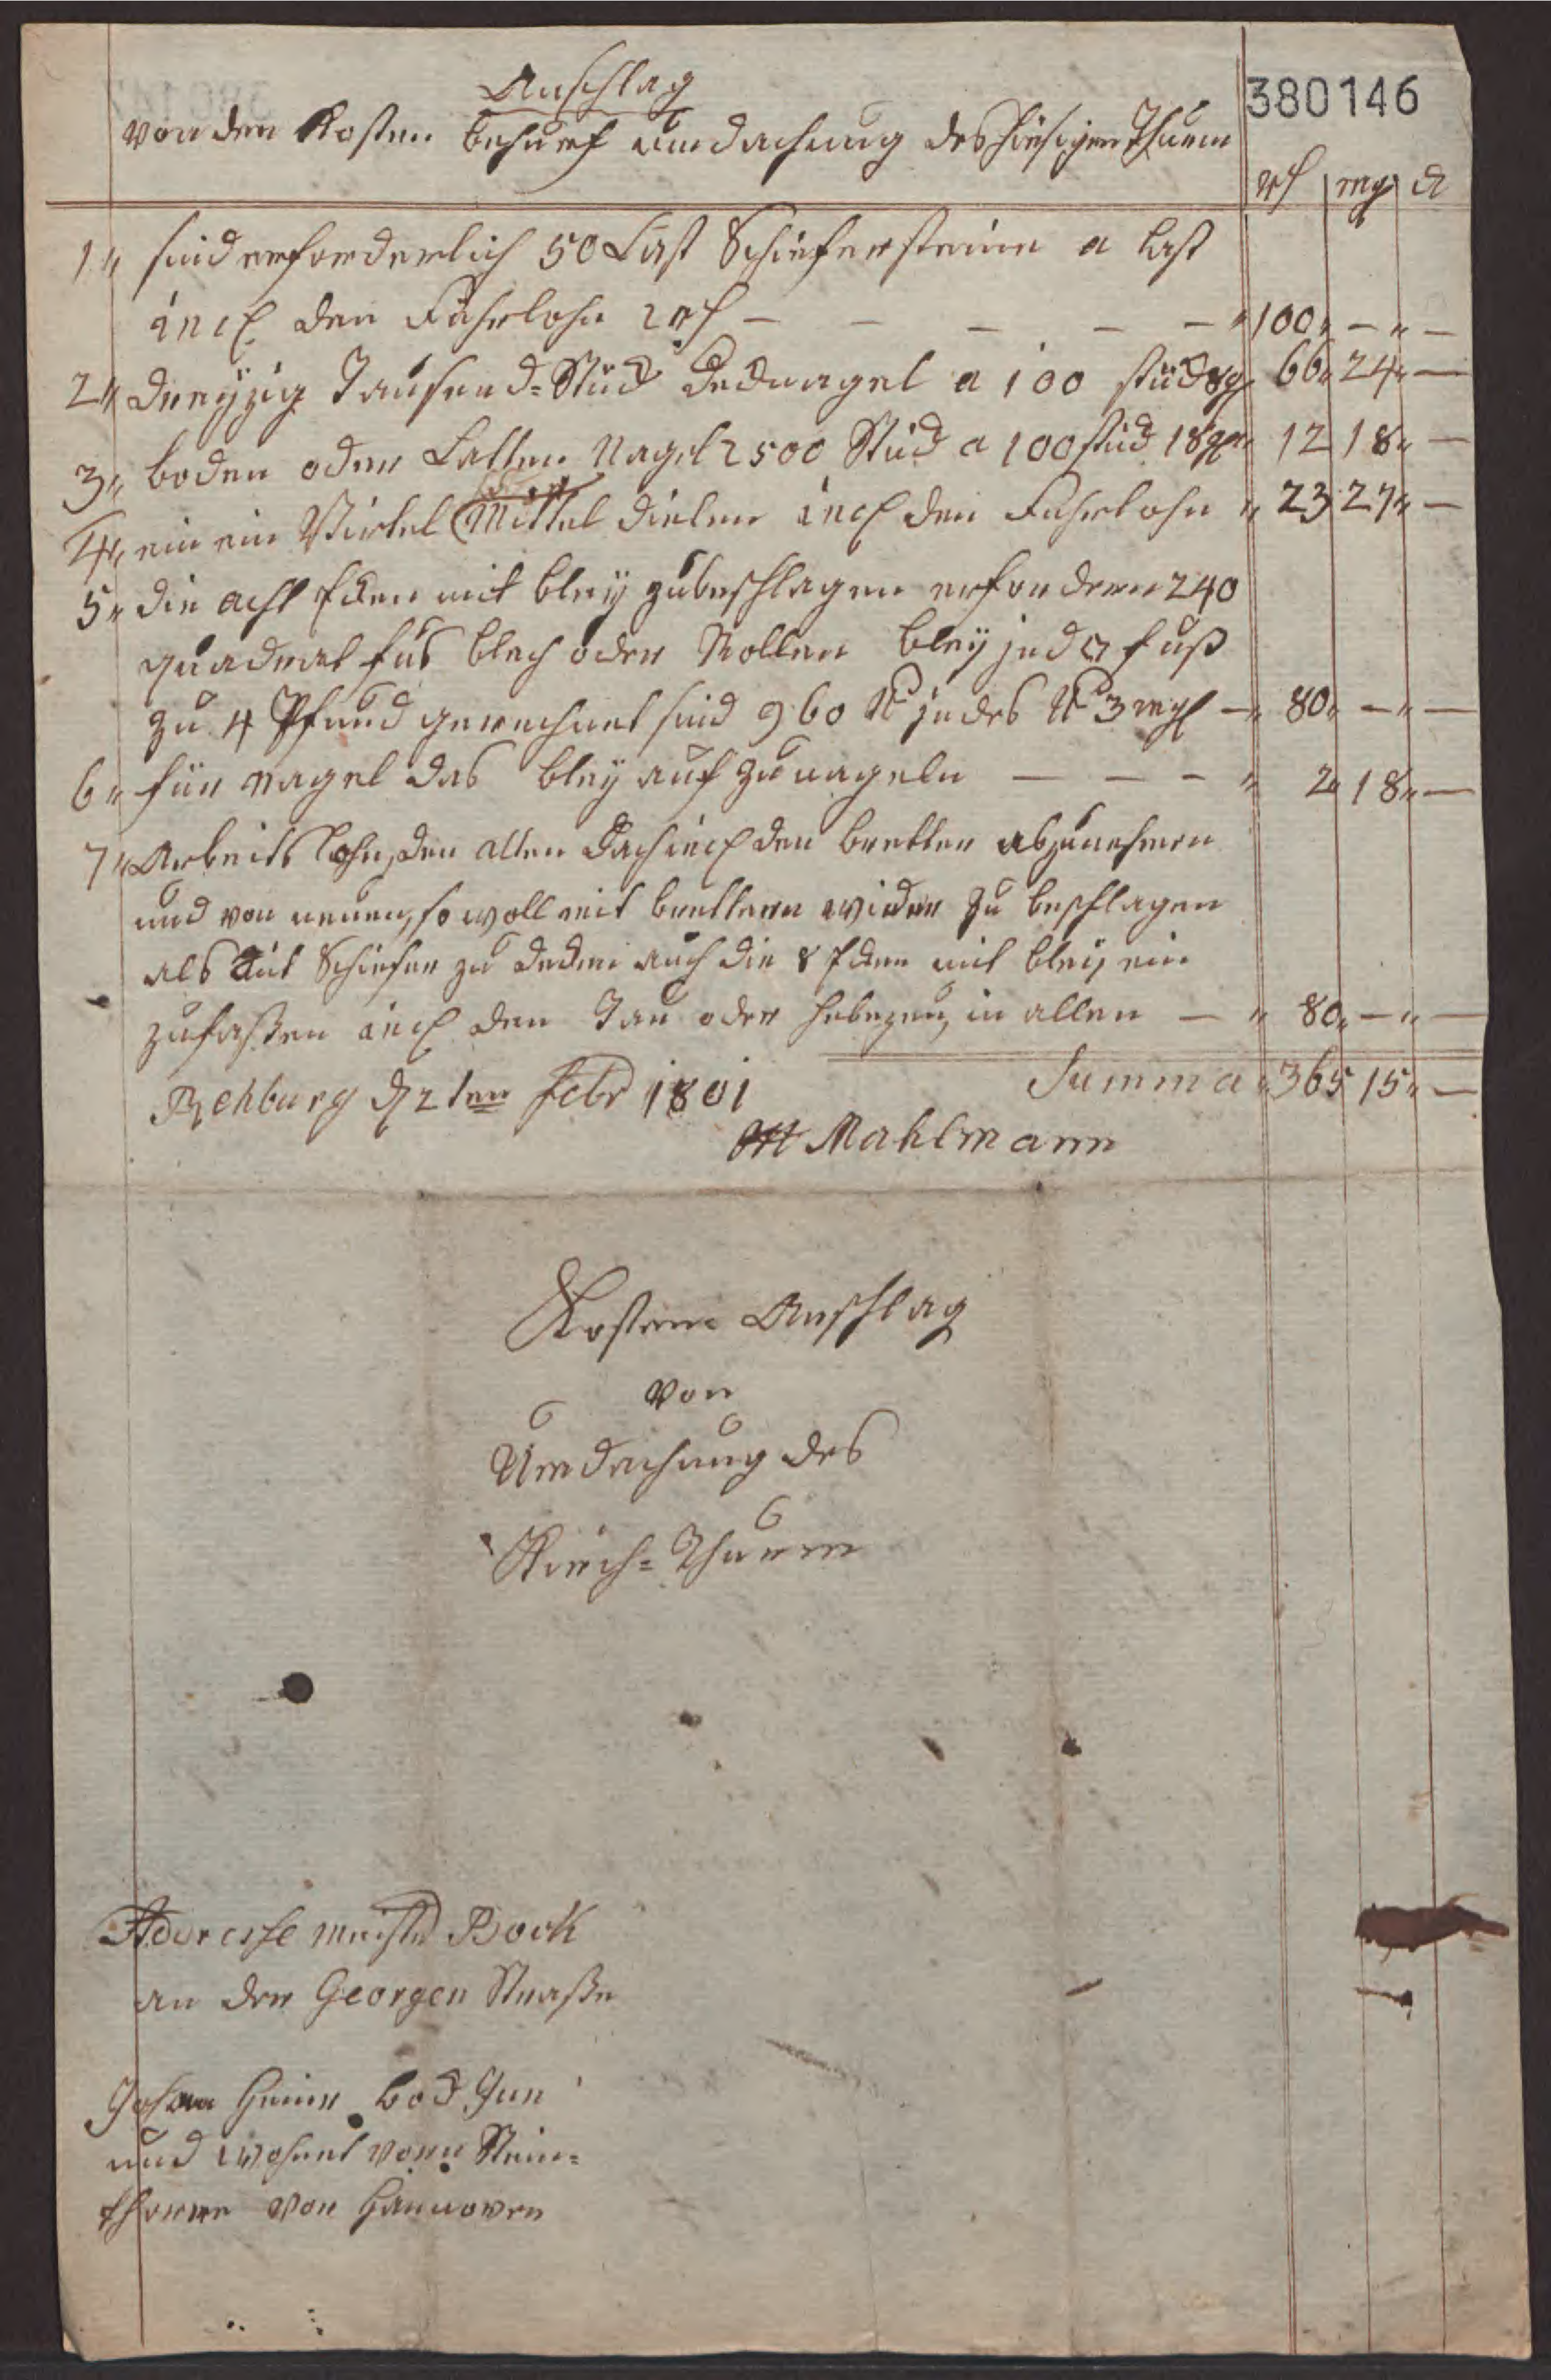 Anschlag
380146
von den Kosten behuef umdachung des hiesigen Thurm
rthl mg d
1" sind erforderlich 50 Last Schiefersteine a Last
incl. den Fuhrlohn 2 rthl — — — — — " 100 " — " —
2" dreyzig Tausend-Stück Decknagel a 100 stück 8 g 66 " 24 " —
3" boden oder Latten Nagel 2500 Stück a 100 stück 18 gr 12 18 " —
4" ein ein Virtel Mittel dielen incl den Fuhrlohn " 23 27 " —
5" die acht Ecken mit bley zubeschlagen erfordern 240
quadrat fus blech oder Rollen bley jed □ fuß
zu 4 Pfund gerechnet sind 960 ℔ jedes ℔ 3 mgl — " 80 " — " —
6" für nagel das bley auf zu nageln — — — " 2 " 18 " —
7" Arbeits lohn, den alten Dach incl den bretter abzunehmen
und von neuen, so woll mit brettern wieder zu beschlagen
als mit Schiefer zu decken auch die 8 Ecken mit bley ein
zufaßen incl den Tau oder hebezeug, in allen — " 80 " — " —
Rehburg d 2ten Febr 1801 Summa " 365 15 " —
Mahlmann
Kosten Anschlag
von
Umdachung des
Kirch-Thurm
Adresse meister Bock
an der Georgen Straße
Johan Heinr Bock Jun
und wohnet vorn Stein-
thorre von Hannover